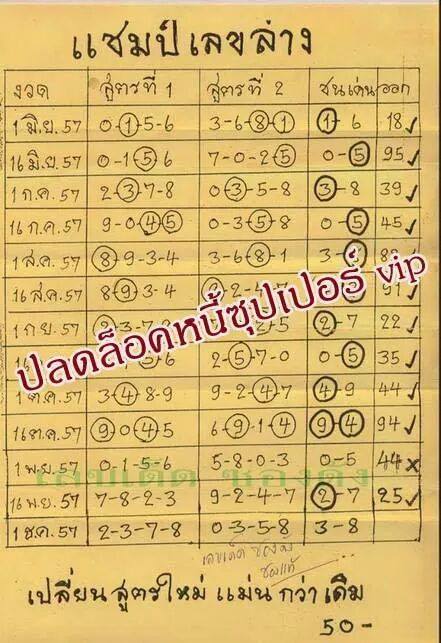 แชมป์เลขล่าง
งวด สูตรที่ 1 สูตรที่ 2 ชนเด่น ออก
1 มิ.ย. 57 0-1-5-6 3-6-8-1 1-6 18✓
16 มิ.ย. 57 0-1-5-6 7-0-2-5 0-5 95✓
1 ก.ค. 57 2-3-7-8 0-3-5-8 3-8 39✓
16 ก.ค. 57 9-0-4-5 0-3-5-8 0-5 45✓
1 ส.ค. 57 8-9-3-4 3-6-8-1 3-
16 ส.ค. 57 8-9-3-4 91✓
1 ก.ย. 57 2-7 22✓
ปลดล็อคหนี้ซุปเปอร์ vip
2-5-7-0 0-5 35✓
1 ต.ค. 57 3-4-8-9 9-2-4-7 4-9 44✓
16 ต.ค. 57 9-0-4-5 6-9-1-4 9-4 94✓
1 พ.ย. 57 0-1-5-6 5-8-0-3 0-5 44×
เลขเด็ด ซองดัง
16 พ.ย. 57 7-8-2-3 9-2-4-7 2-7 25✓
1 ธ.ค. 57 2-3-7-8 0-3-5-8 3-8
เลขเด็ด ซองดัง
ของแท้
เปลี่ยนสูตรใหม่ แม่นกว่าเดิม
50-